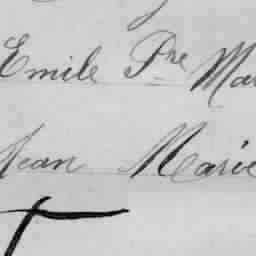 Emile Pre Ma
Jean Marie